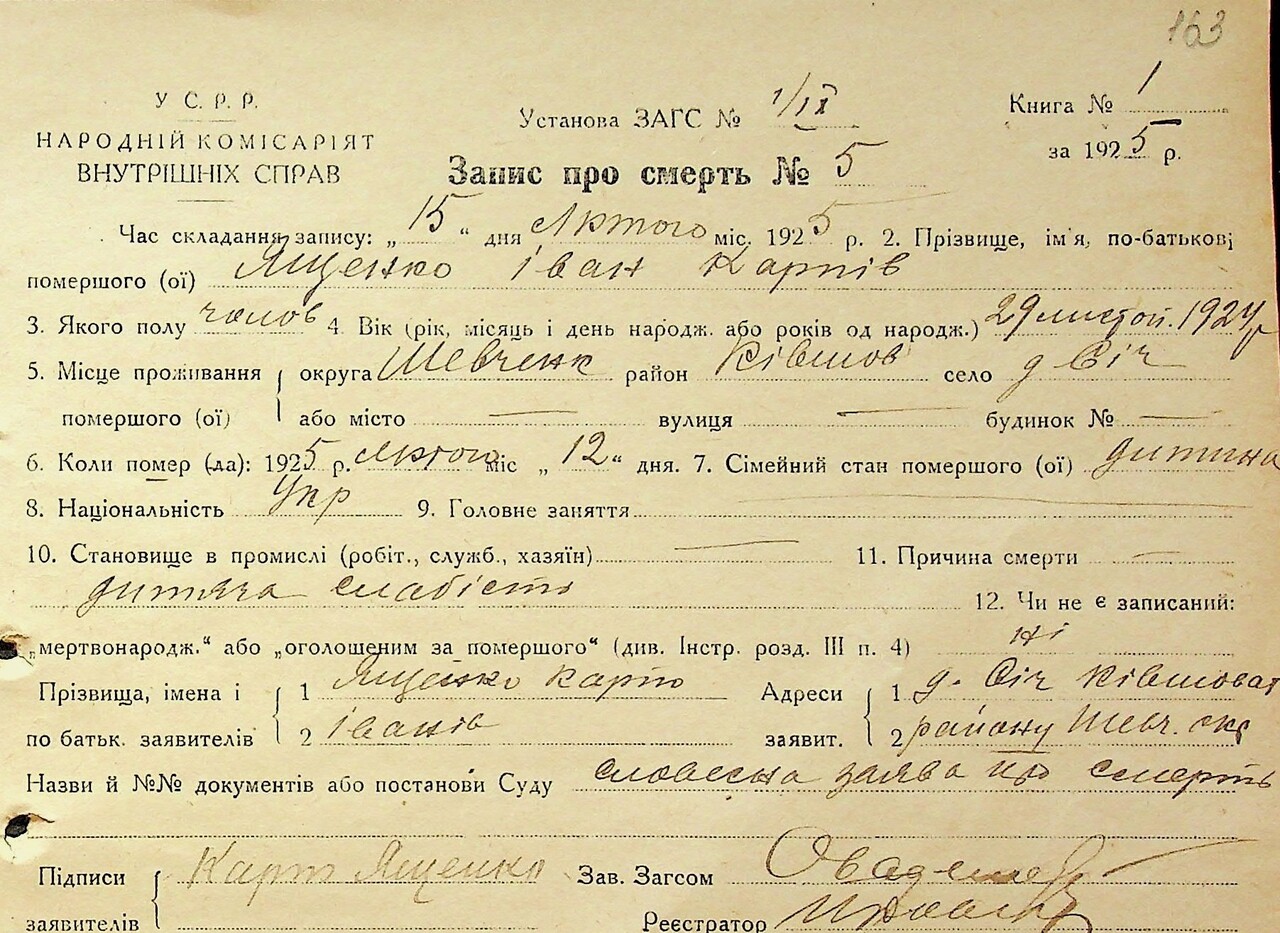 163
У С. Р. Р.
НАРОДНІЙ КОМІСАРІЯТ
ВНУТРІШНІХ СПРАВ
Установа ЗАГС № 1/IX
Книга № 1
за 1925 р.
Запис про смерть № 5
Час складання запису: „15“ дня Лютого міс. 1925 р. 2. Прізвище, ім'я, по-батькові
помершого (ої) Ященко Іван Карпів
3. Якого полу чолов 4. Вік (рік, місяць і день народж. або років од народж.) 29 листоп. 1924 р
5. Місце проживання округа Шевченк район Ківшов село д. Січ
помершого (ої) або місто — вулиця — будинок № —
6. Коли помер (ла): 1925 р. Лютого міс „12“ дня. 7. Сімейний стан помершого (ої) дитина
8. Національність Укр 9. Головне заняття —
10. Становище в промислі (робіт., служб., хазяїн) — 11. Причина смерти —
дитяча слабість 12. Чи не є записаний:
„мертвонародж.“ або „оголошеним за помершого“ (див. Інстр. розд. III п. 4) ні
Прізвища, імена і 1 Ященко Карп Адреси 1 д. Січ Ківшоват
по батьк. заявителів 2 Іванів заявит. 2 району Шевч. окр
Назви й №№ документів або постанови Суду словесна заява про смерть
Підписи Карп Ященко Зав. Загсом
заявителів Реєстратор